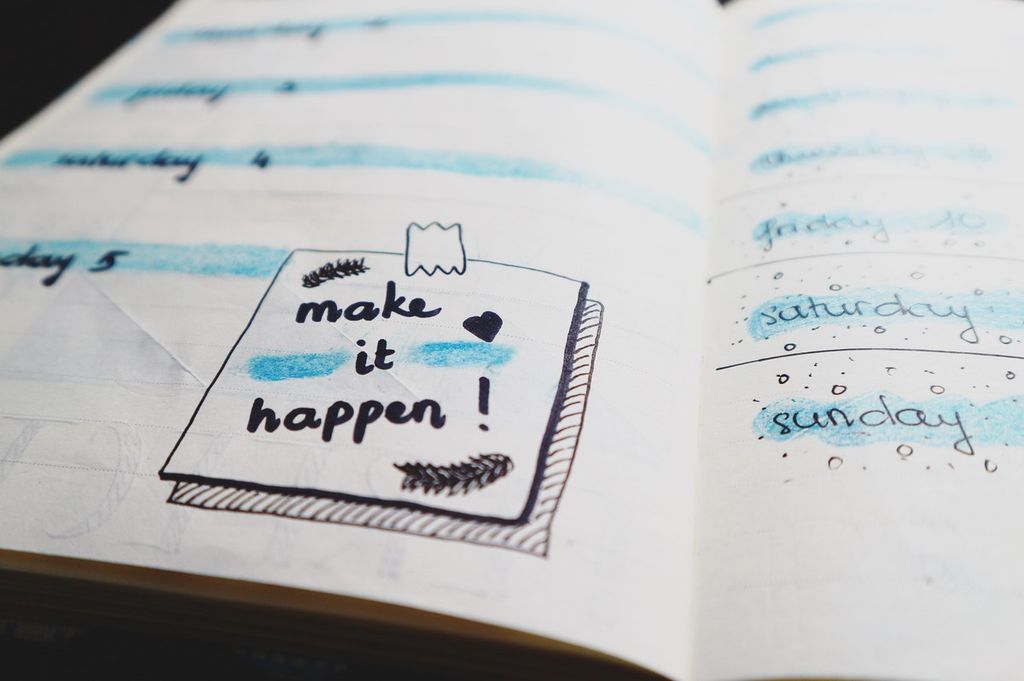 friday 3
saturday 4
day 5
make
it
happen!
thursday
friday 10
saturday
sunday